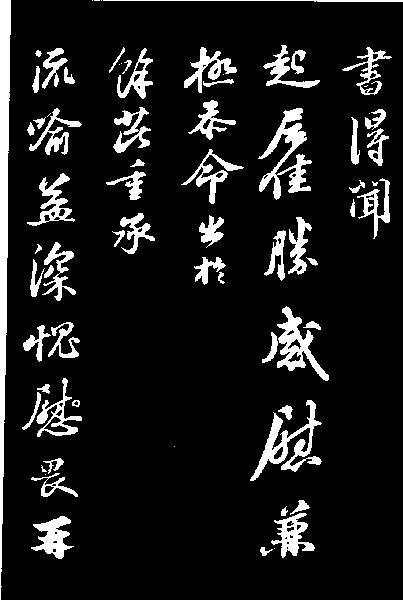 書得聞
起居佳勝感慰兼
極忝命出於
餘芘重承
流喻益深愧慰畏再